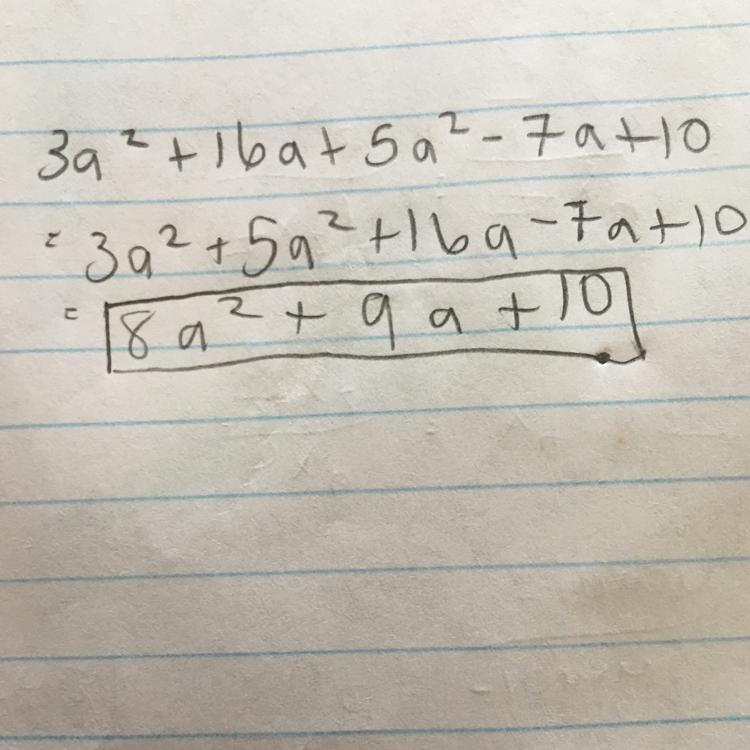 3a² + 16a + 5a² - 7a + 10
= 3a² + 5a² + 16a - 7a + 10
= 8a² + 9a + 10